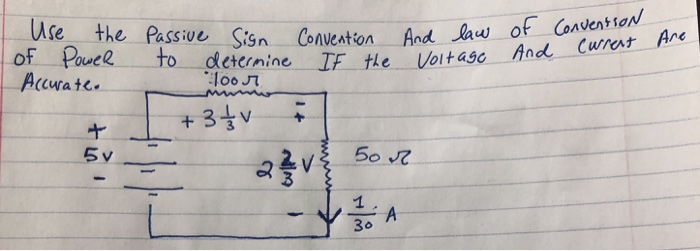 Use the Passive Sign Convention And law of Convension
of Power to determine IF the Voltage And Current Are
Accurate.
100Ω
+ 3 1/3 V -
+
+
5v
-
2 2/3 V
50 Ω
-
1/30 A